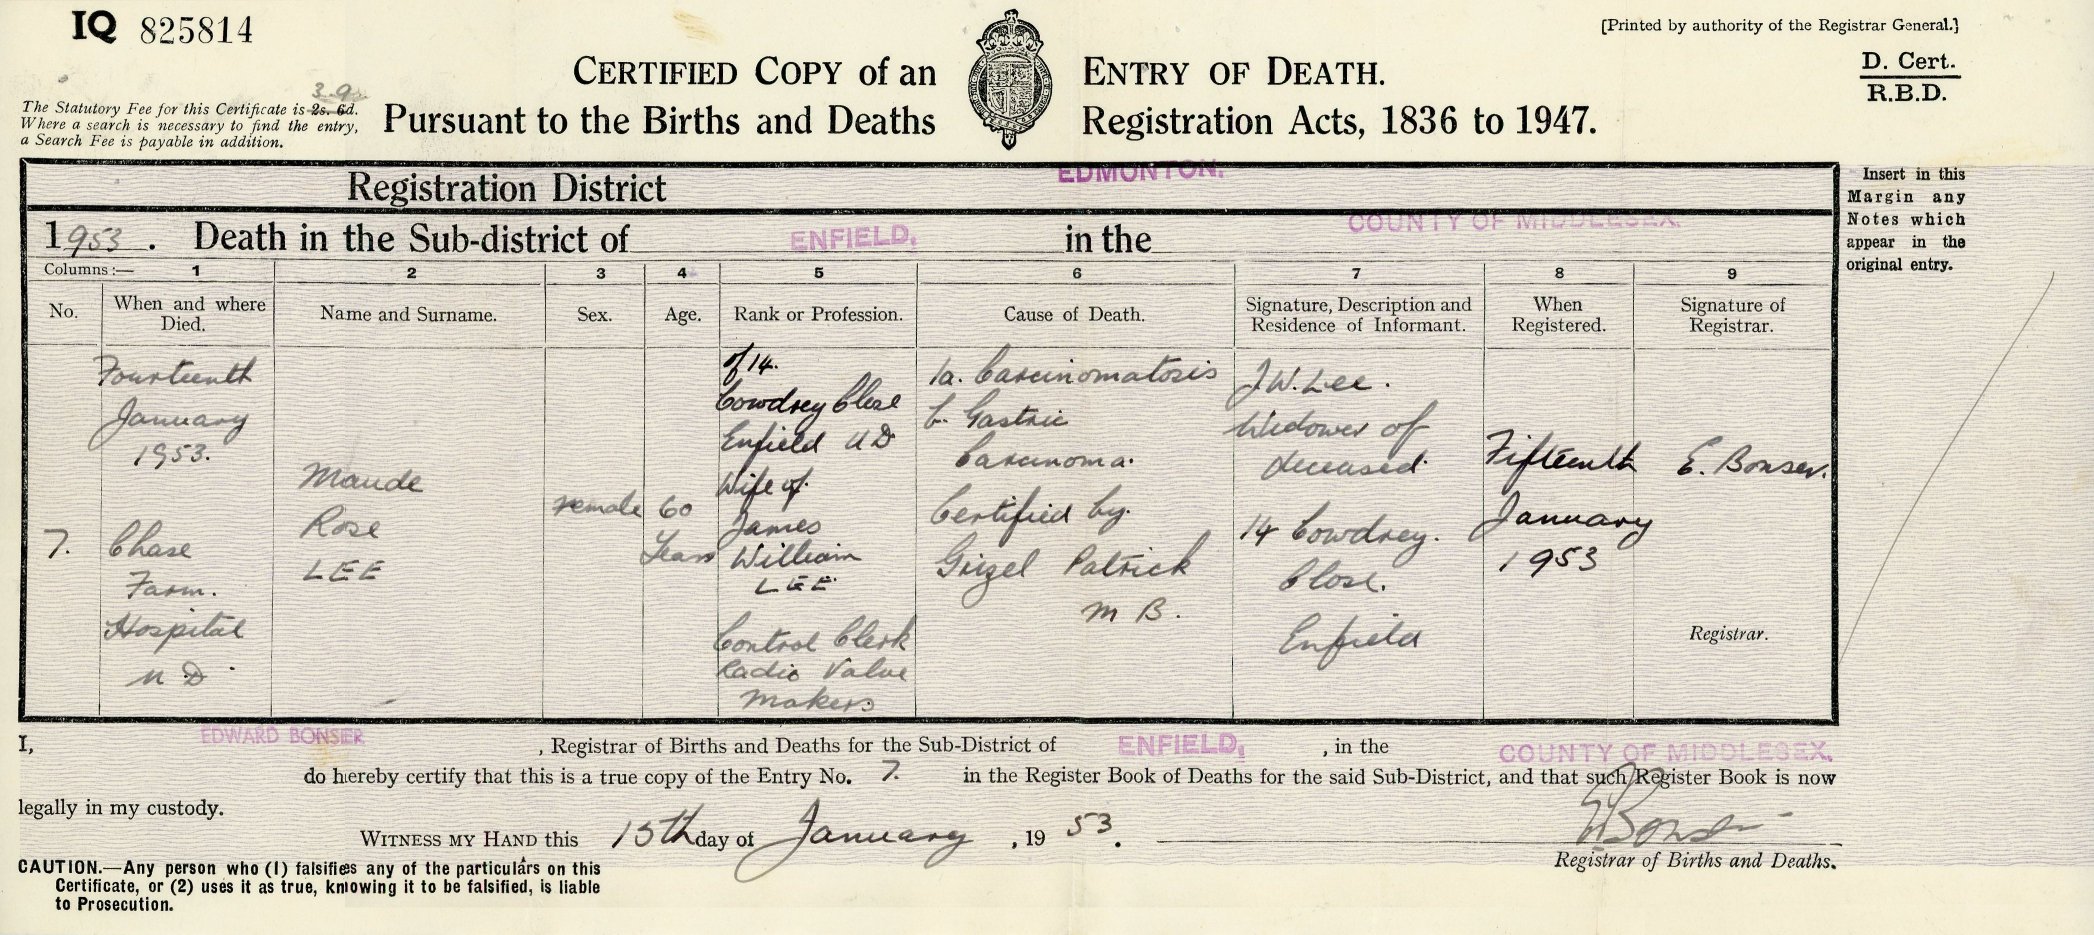 IQ 825814
[Printed by authority of the Registrar General.]
D. Cert.
R.B.D.
CERTIFIED COPY of an ENTRY OF DEATH.
Pursuant to the Births and Deaths Registration Acts, 1836 to 1947.
3. 9
The Statutory Fee for this Certificate is 2s. 6d.
Where a search is necessary to find the entry,
a Search Fee is payable in addition.
Registration District EDMONTON.
1953. Death in the Sub-district of ENFIELD, in the COUNTY OF MIDDLESEX.
Insert in this
Margin any
Notes which
appear in the
original entry.
Columns:— 1 2 3 4 5 6 7 8 9
No.
When and where
Died.
Name and Surname.
Sex.
Age.
Rank or Profession.
Cause of Death.
Signature, Description and
Residence of Informant.
When
Registered.
Signature of
Registrar.
7.
Fourteenth
January
1953.
Chase
Farm.
Hospital
U D
Maude
Rose
LEE
Female
60
Years
of 14.
Cowdrey Close
Enfield U D
Wife of
James
William
LEE
Control Clerk
Radio Valve
Makers
1a. Carcinomatosis
b. Gastric
Carcinoma.
Certified by.
Grizel Patrick
M B.
J.W. Lee.
Widower of
deceased.
14 Cowdrey.
Close.
Enfield
Fifteenth
January
1953
E. Bonser.
Registrar.
I, EDWARD BONSER, Registrar of Births and Deaths for the Sub-District of ENFIELD, in the COUNTY OF MIDDLESEX.
do hereby certify that this is a true copy of the Entry No. 7. in the Register Book of Deaths for the said Sub-District, and that such Register Book is now
legally in my custody.
WITNESS MY HAND this 15th day of January, 1953.
E Bonser
Registrar of Births and Deaths.
CAUTION.—Any person who (1) falsifies any of the particulars on this
Certificate, or (2) uses it as true, knowing it to be falsified, is liable
to Prosecution.